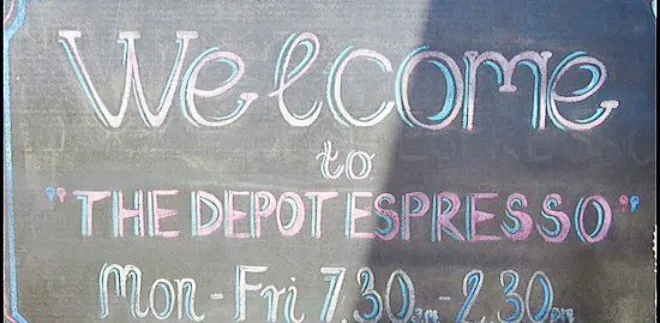 Welcome
to
"THE DEPOT ESPRESSO"
Mon-Fri 7.30am-2.30pm